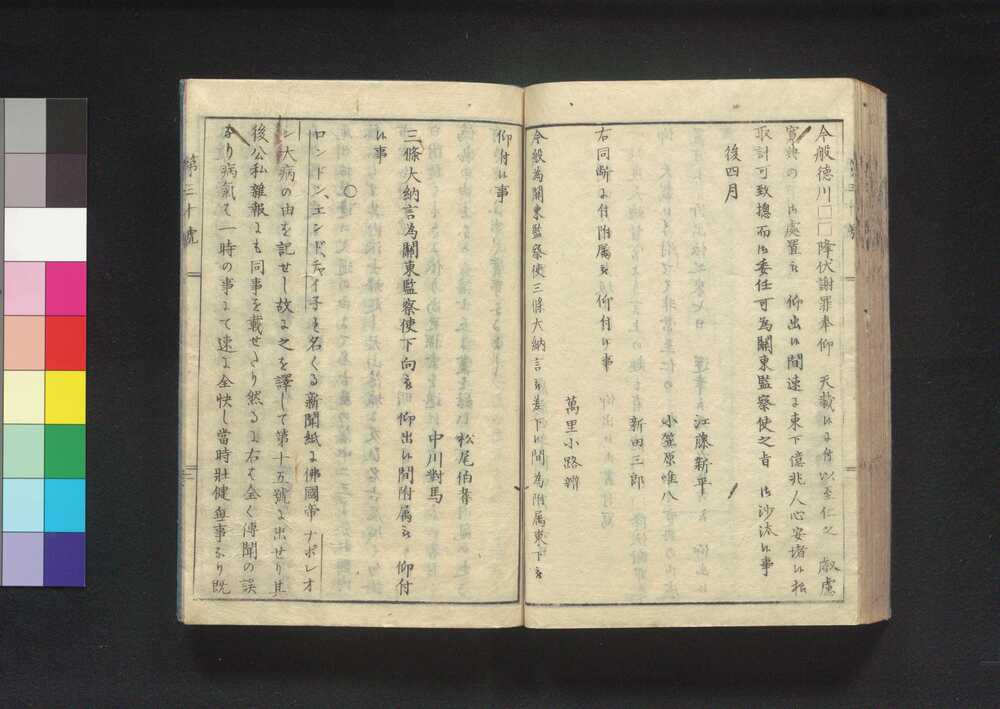 今般徳川□□降伏謝罪奉仰　天裁候に付以至仁之　叡慮
寛典の御處置被　仰出候間速に東下億兆人心安堵候様
取計可致摠而御委任可為關東監察使之旨　御沙汰候事
後四月
江藤新平
小笠原唯八
新田三郎
右同断に付附属被　仰付候事
萬里小路辨
今般為關東監察使三條大納言被差下候間為附属東下被
仰付候事
松尾伯耆
中川對馬
三條大納言為關東監察使下向被　仰出候間附属被　仰付
候事
○
ロンドン、エンド、チャイ子を名くる新聞紙に佛國帝ナポレオ
ン大病の由を記せし故に之を譯して第十五號に出せり其
後公私雜報にも同事を載せたり然るに右は全く傳聞の誤
なり病氣は一時の事にて速に全快し當時壯健無事なり既
第三十號